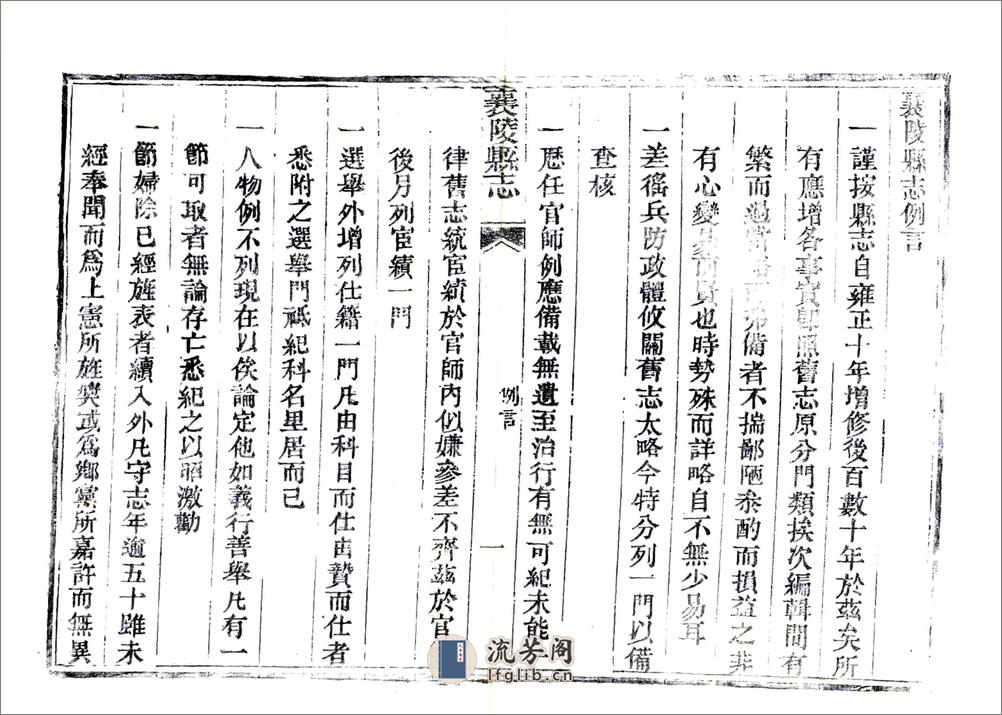 襄陵縣志例言
一謹按縣志自雍正十年增修後百數十年於茲矣所
有應增各事實卽照舊志原分門類挨次編輯間有
繁而過當略而弗備者不揣鄙陋叅酌而損益之非
有心變易前賢也時勢殊而詳略自不無少易耳
一差徭兵防政體攸關舊志太略今特分列一門以備
查核
襄陵縣志
例言
一
一歷任官師例應備載無遺至治行有無可紀未能
律舊志統宦績於官師內似嫌參差不齊茲於官
後另列宦績一門
一選舉外增列仕籍一門凡由科目而仕由貲而仕者
悉附之選舉門祗紀科名里居而已
一人物例不列現在以俟論定他如義行善舉凡有一
節可取者無論存亡悉紀之以昭激勸
一節婦除已經旌表者續入外凡守志年逾五十雖未
經奉聞而爲上憲所旌獎或爲鄉黨所嘉許而無異
流芳阁
lfglib.cn